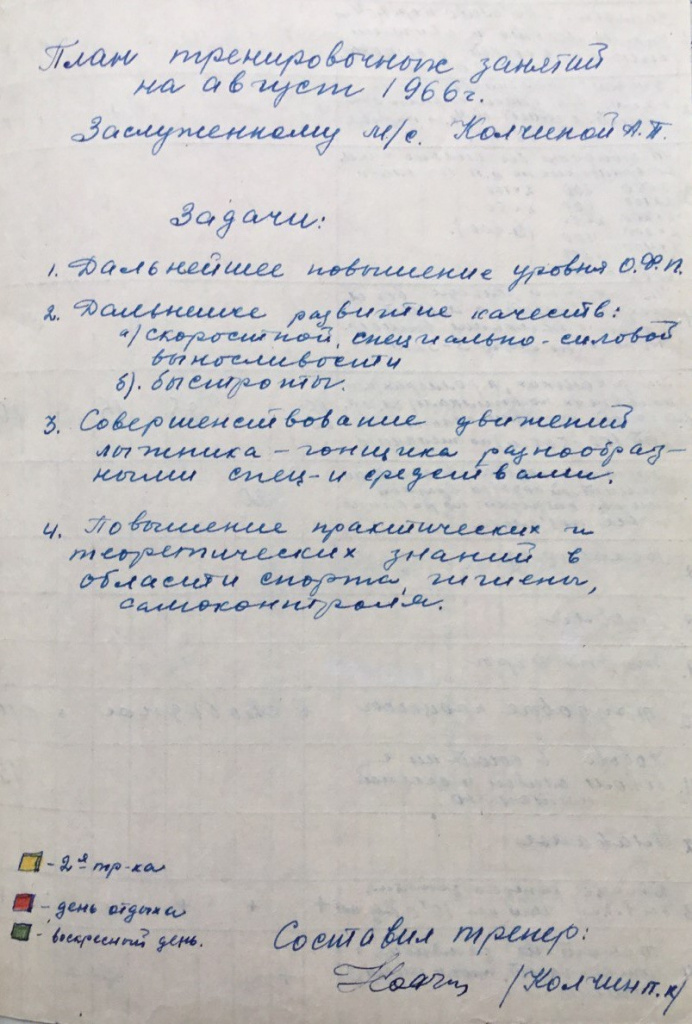 План тренировочных занятий
на август 1966г.
Заслуженному м/с. Колчиной А.П.
Задачи:
1. Дальнейшее повышение уровня О.Ф.П.
2. Дальнешее развитие качеств:
а) скоростной, специально-силовой
выносливости
б). быстроты.
3. Совершенствование движений
лыжника-гонщика разнообраз-
ными спец-и средствами.
4. Повышение практических и
теоретических знаний в
области спорта, гигиены,
самоконтроля.
- 2я тр-ка
- день отдыха
- воскресный день.
Составил тренер:
/Колчин П.К/